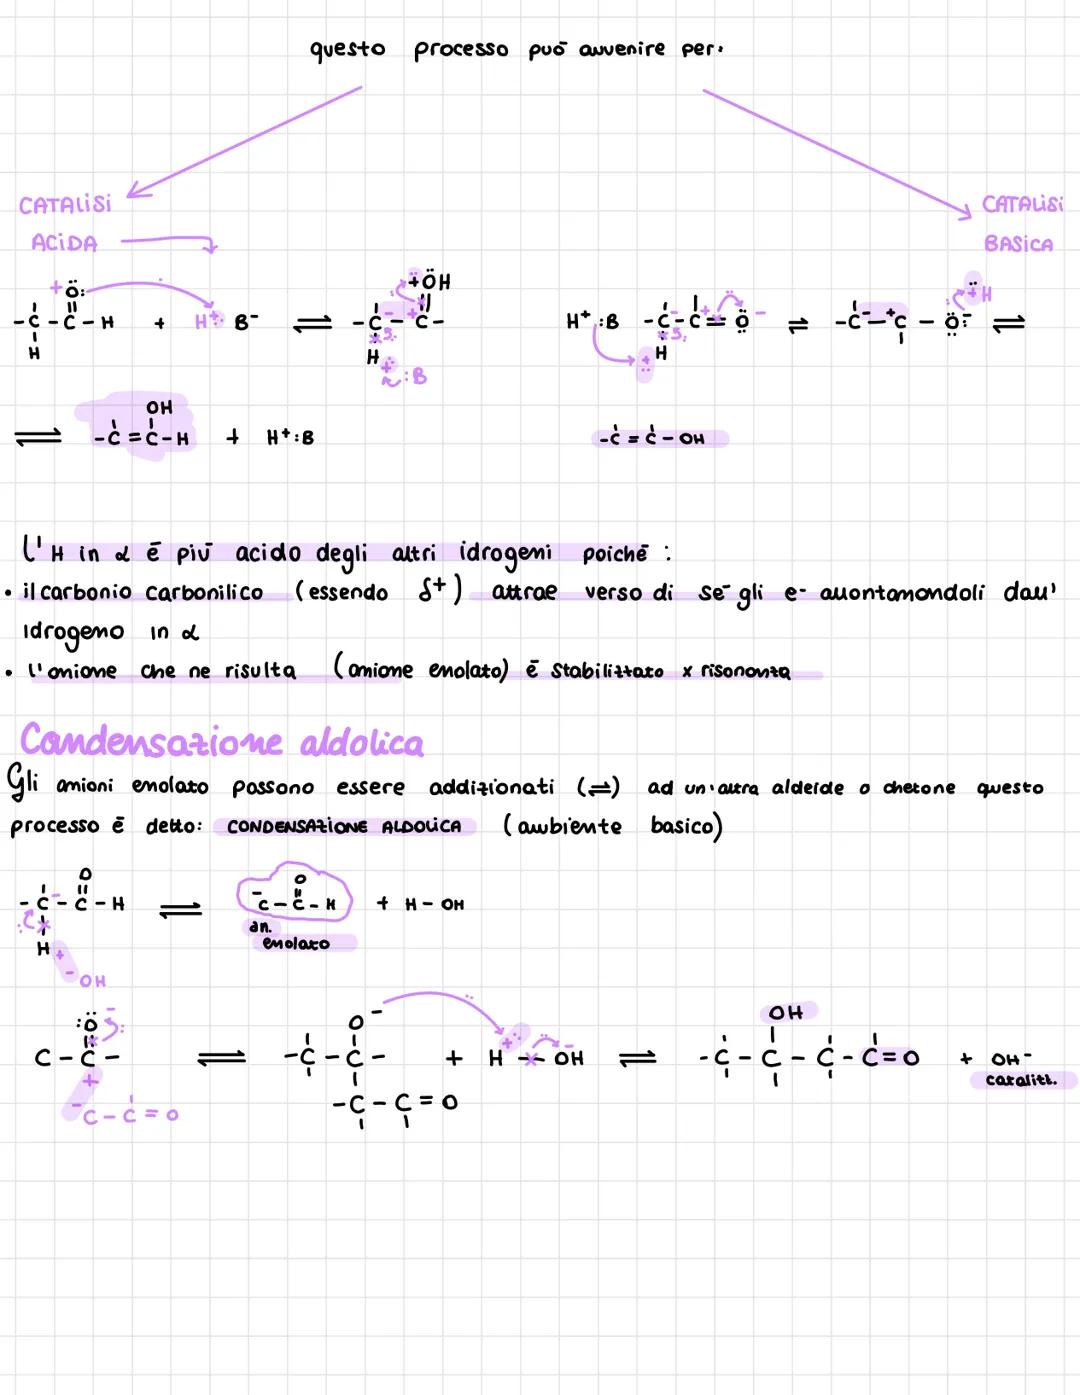 questo processo può avvenire per:
CATALISI
ACIDA
CATALISI
BASICA
+ Ö:
-C-C-H + H+: B- ⇌ -C-C-
H
+ÖH
H
+ :B
H+ :B -C-C=Ö- ⇌ -C-+C-Ö:- ⇌
H
+H
OH
⇌ -C=C-H + H+:B
-C=C-OH
L'H in α è più acido degli altri idrogeni poiché :
• il carbonio carbonilico (essendo δ+) attrae verso di sé gli e- allontanandoli dall'
idrogeno in α
• l'anione che ne risulta (anione enolato) è stabilizzato x risonanza
Condensazione aldolica
Gli anioni enolato possono essere addizionati (⇌) ad un'altra aldeide o chetone questo
processo è detto: CONDENSAZIONE ALDOLICA (ambiente basico)
O
-C-C-H ⇌ -C-C-H + H-OH
O
H+
-OH
an.
enolato
:Ö
C-C- ⇌ -C-C- + H-OH ⇌ -C-C-C-C=O + OH-
O-
OH
catalizz.
+
-C-C=O
-C-C=O